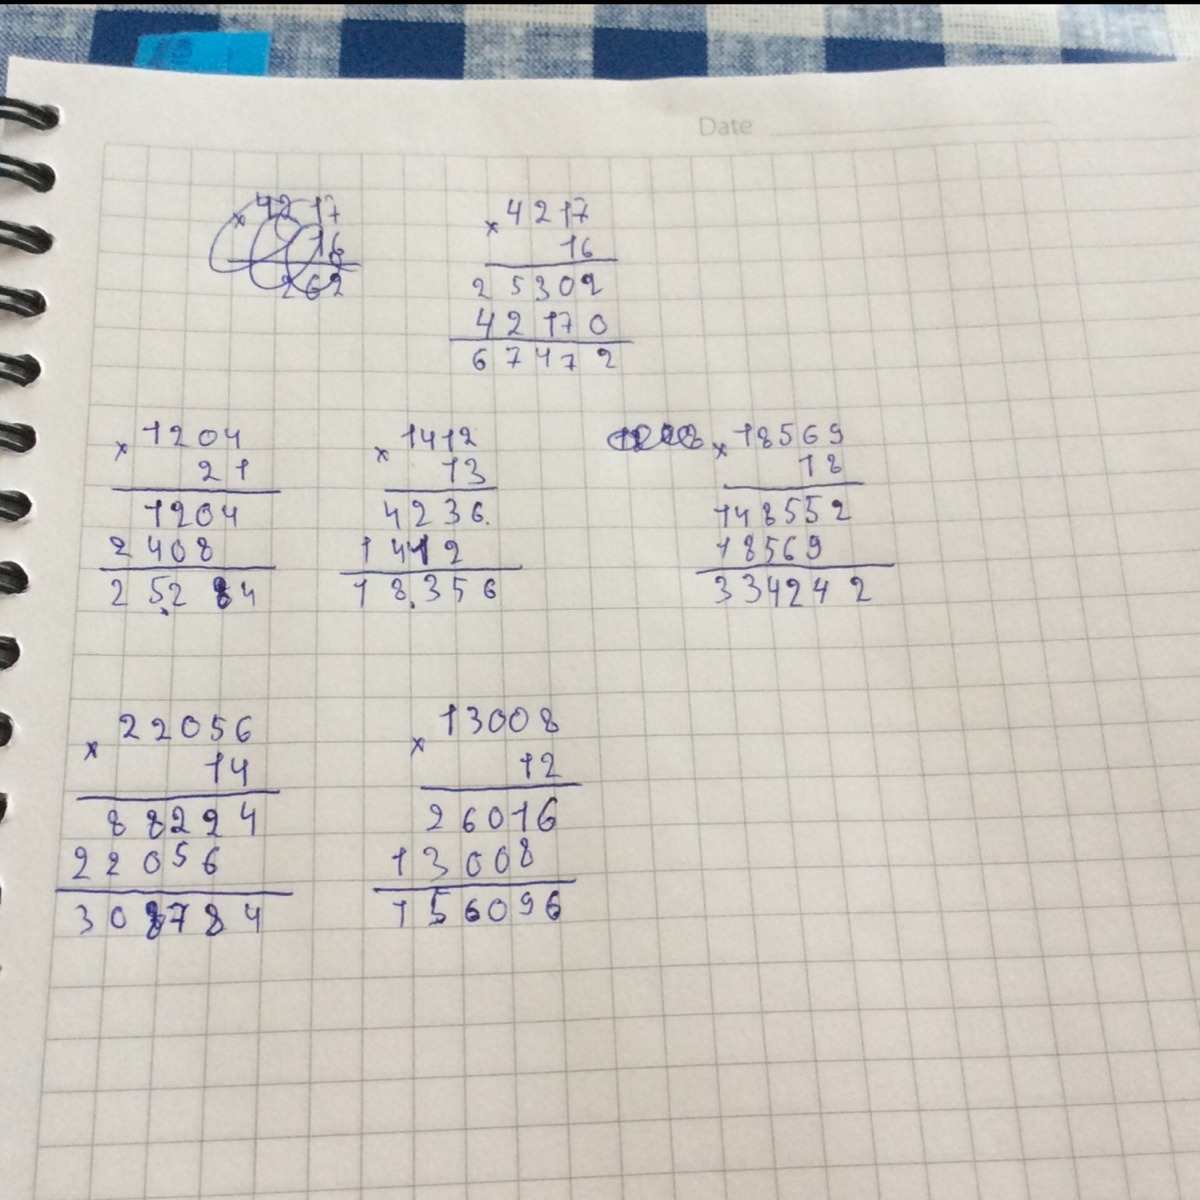 Date
× 4217
16
262
× 4217
16
25302
42170
67472
× 1204
21
1204
2408
25.284
× 1412
13
4236.
1412
18.356
× 18569
18
148552
18569
334242
× 22056
14
88224
22056
308784
× 13008
12
26016
13008
156096